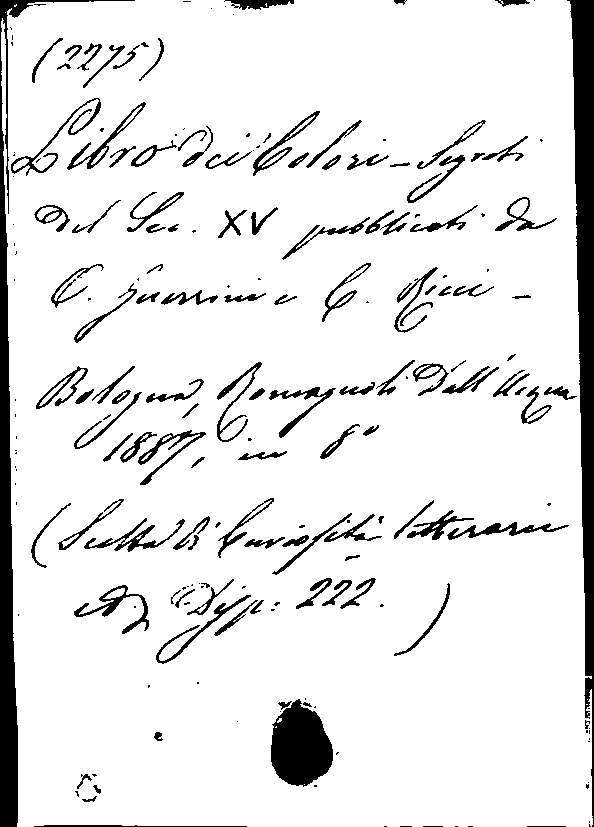 (2275)
Libro dei Colori - Segreti
del Sec. XV pubblicati da
O. Guerrini e C. Ricci -
Bologna, Romagnoli Dall'Acqua
1887, in 8°
(Scelta di Curiosità letterarie
Disp: 222.)